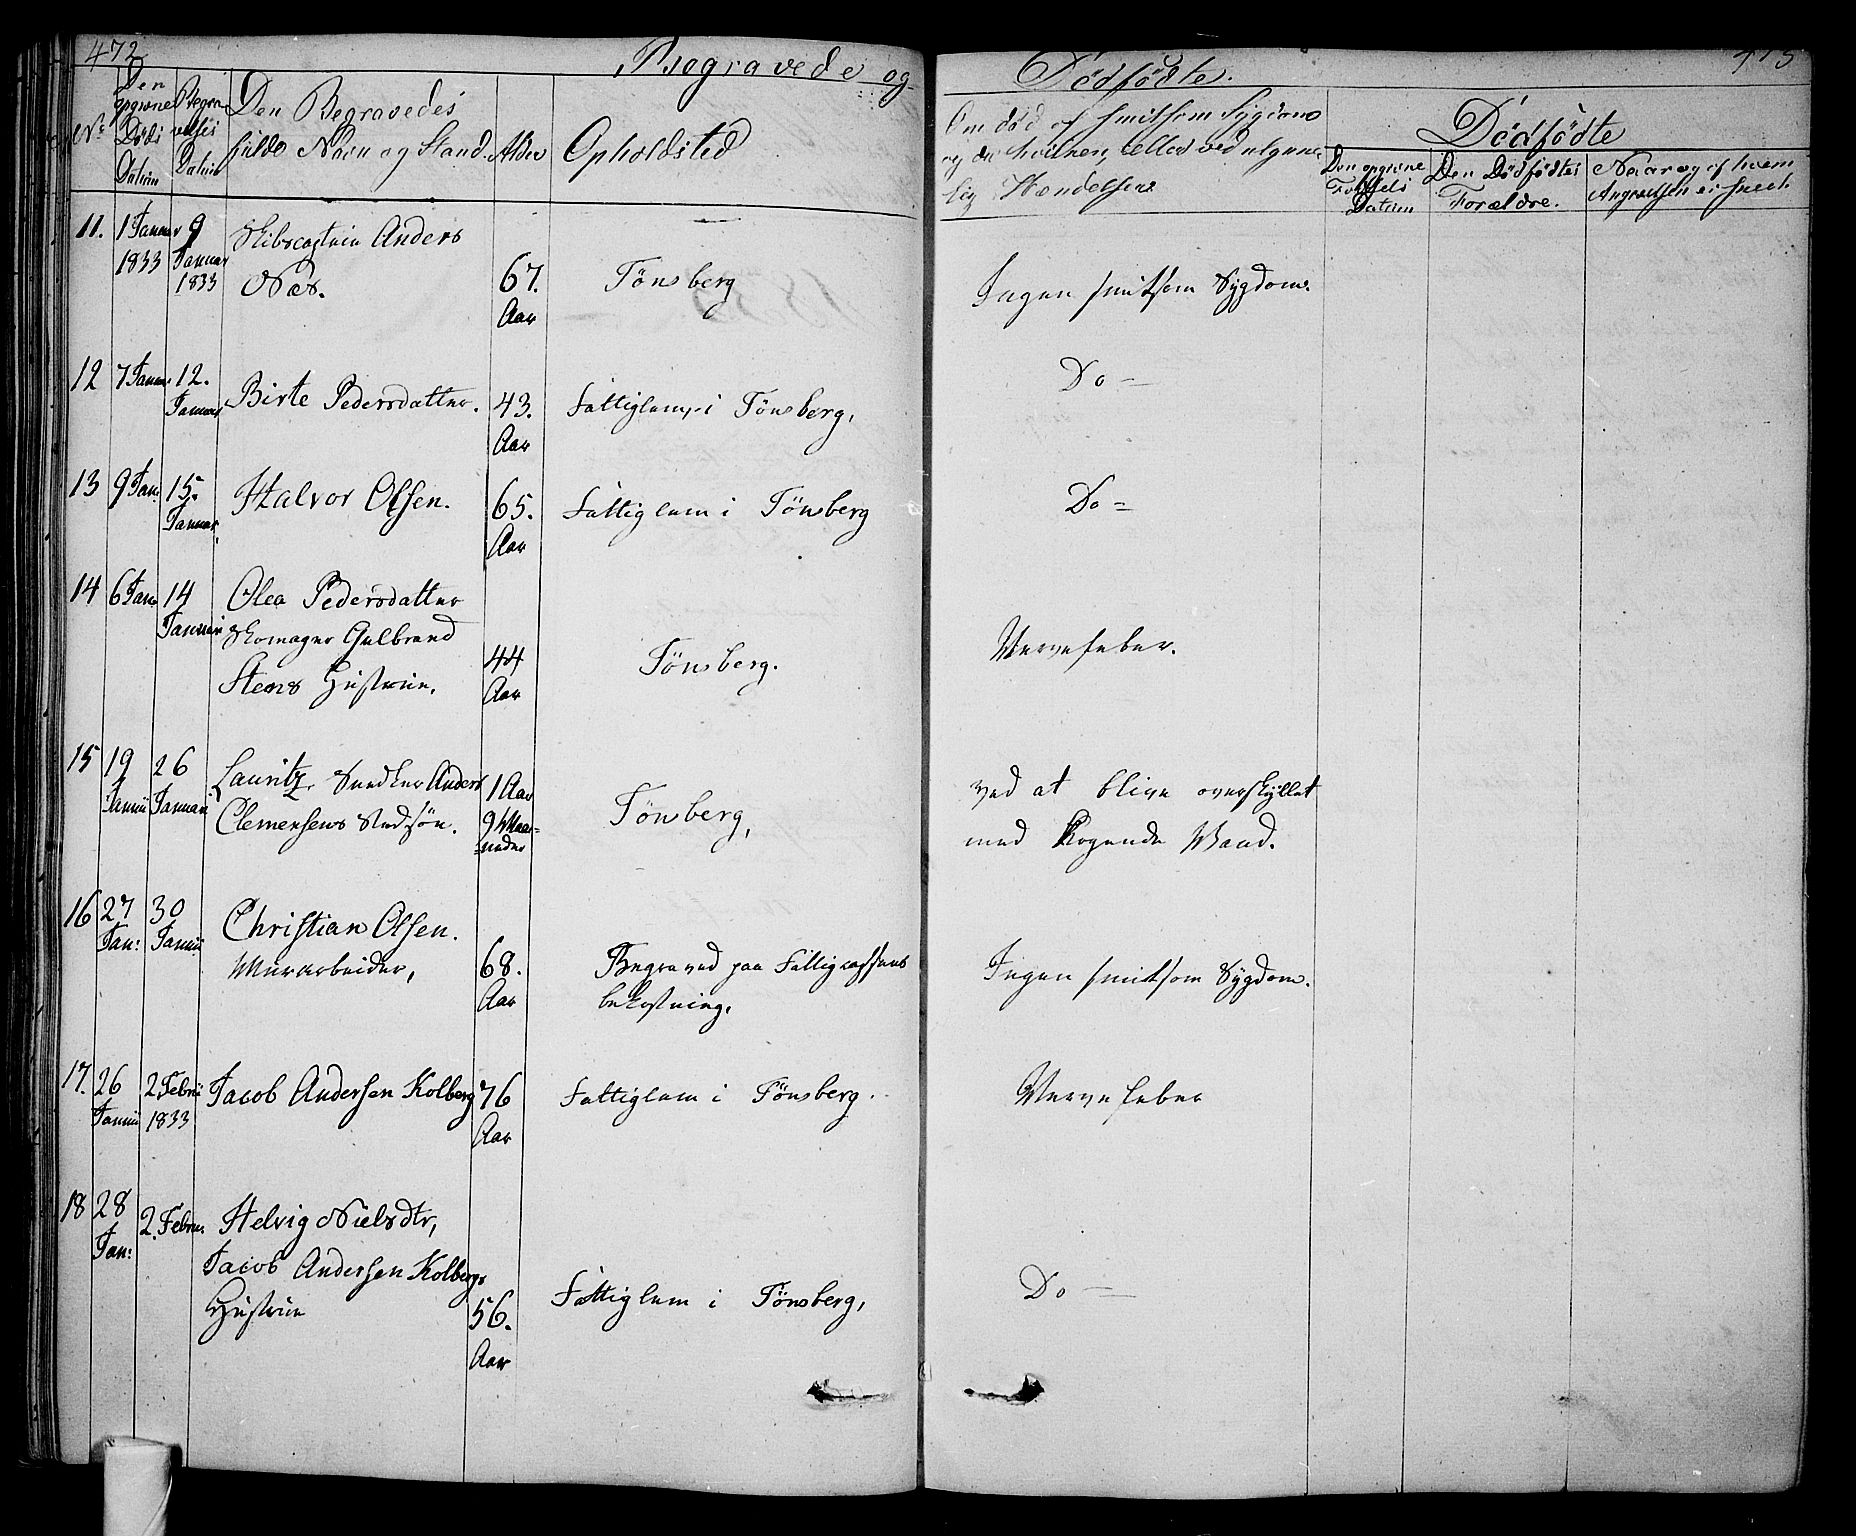 472
Begravede og
No
Den opgivne Døds Datum
Begravelses Datum
Den Begravedes
fulde Navn og Stand.
Alder
Opholdsted
11.
1 Januar
1833
9
Januar
1833
Skibscaptain Anders
Næs.
67.
Aar
Tönsberg
12
7 Januar
12.
Januar
Birte Pedersdatter.
43.
Aar
Fattiglem i Tönsberg,
13
9 Jan:
15.
Januar,
Halvor Olsen.
65.
Aar
Fattiglem i Tönsberg
14
6 Janu
14
Januar
Olea Pedersdatter
Skomager Gulbrand
Stens Hustrue.
44
Aar
Tönsberg.
15
19
Janua
26
Januari
Lauritz, Snedker Anders
Clemensens Stedsøn.
1 Aar
9 Maa=
=neder
Tönsberg,
16
27
Jan:
30
Janua
Christian Olsen.
Murarbeider,
68.
Aar
Begraved paa Fattigcassens
bekostning,
17.
26
Janua
2 Febru
1833
Jacob Andersen Kolberg
76
Aar
Fattiglem i Tönsberg.
18
28
Jan:
2. Febru.
Helvig Nielsdtr,
Jacob Andersen Kolbergs
Hustrue
56.
Aar
Fattiglem i Tönsberg,
473
Dödfödte.
Om død af smitsom Sygdom
og da hvilken, eller ved ulykke-
lig Hændelse.
Dödfödte
Den opgivne
Fødsels
Datum
Den Dödfödtes
Forældre.
Naar og af hvem
Angivelsen er skeet.
Ingen smitsom Sygdom.
Do —
Do =
Nervefeber.
ved at blive overskyllet
med kogende Vand.
Ingen smitsom Sygdom.
Nervefeber
Do —